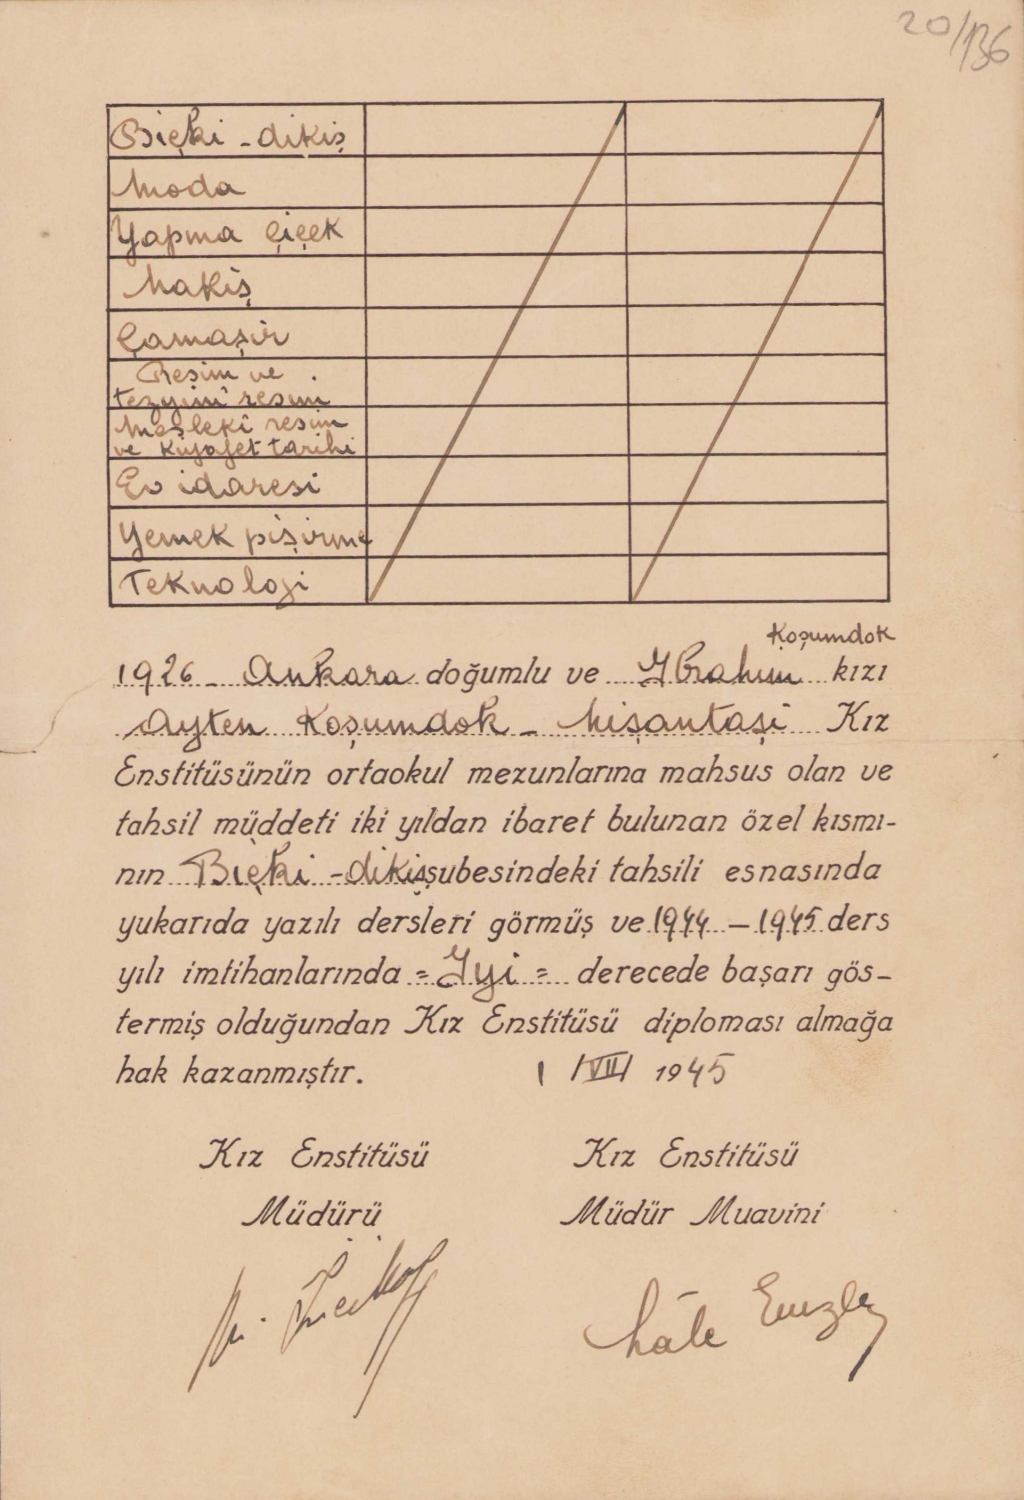 20/136
Biçki - dikiş
Moda
Yapma çiçek
Nakiş
Çamaşir
Resim ve
tezyinî resim
Mesleki resim
ve kıyafet tarihi
Ev idaresi
Yemek pişirme
Teknoloji
Koşumdok
1926 - Ankara doğumlu ve İbrahim kızı
Ayten Koşumdok - Nişantaşi Kız
Enstitüsünün ortaokul mezunlarına mahsus olan ve
tahsil müddeti iki yıldan ibaret bulunan özel kısmı-
nın Biçki - dikiş şubesindeki tahsili esnasında
yukarıda yazılı dersleri görmüş ve 1944 - 1945 ders
yılı imtihanlarında = İyi = derecede başarı gös-
termiş olduğundan Kız Enstitüsü diploması almağa
hak kazanmıştır. 1 / VII / 1945
Kız Enstitüsü Kız Enstitüsü
Müdürü Müdür Muavini